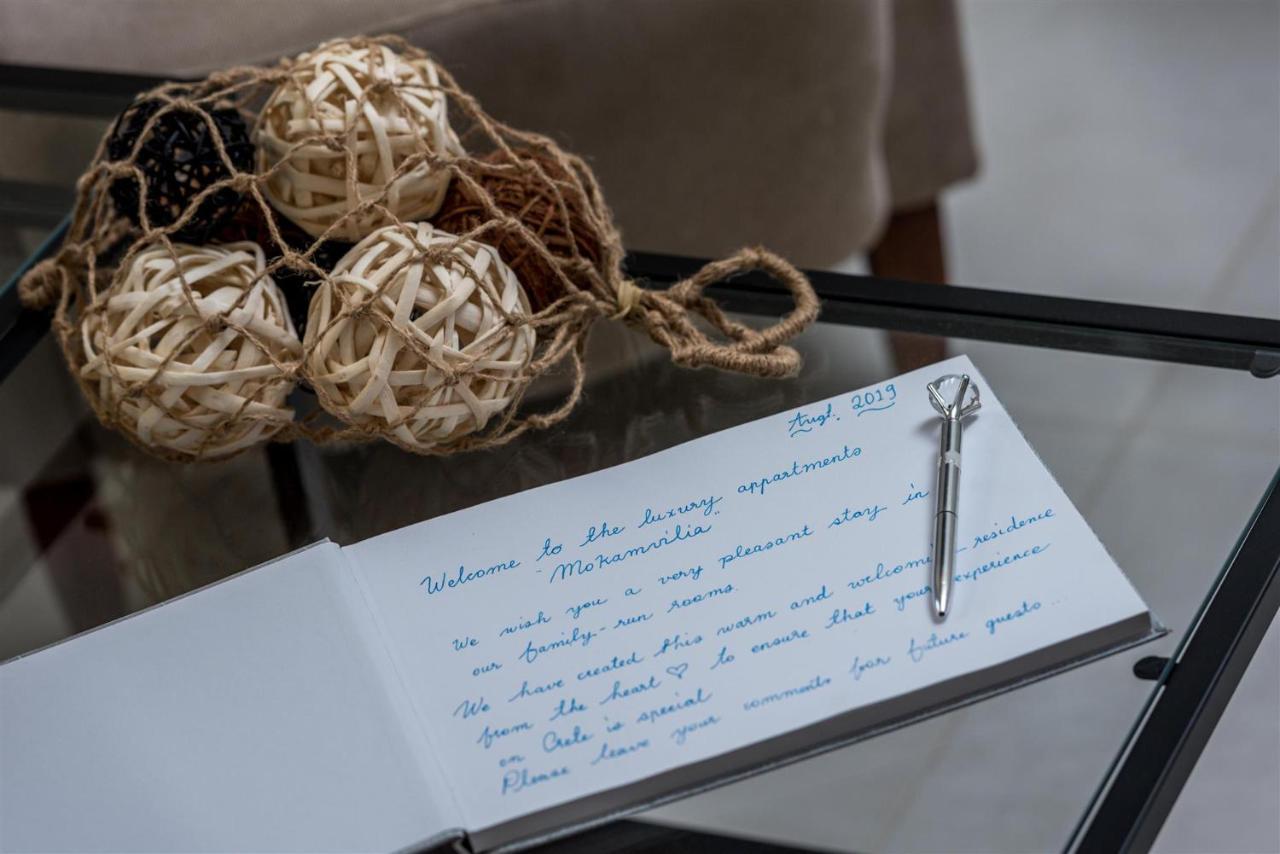 Augt. 2019
Welcome to the luxury appartments
"Mokamvilia"
We wish you a very pleasant stay in
our family-run rooms.
We have created this warm and welcomi - residence
from the heart ♡ to ensure that your experience
on Crete is special
Please leave your comments for future guests...